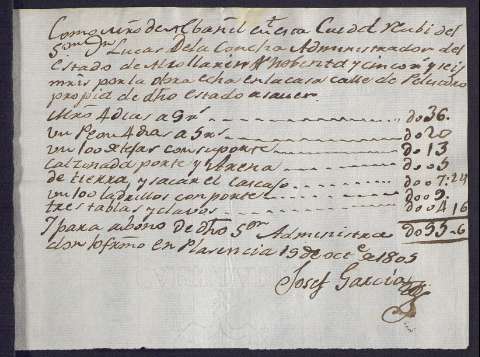 Como Mrõ de Albañil en esta Ciudd. reubi del
Sor. Dn. Lucas de la Concha Administrador del
Estado de Mirabel noventa y cinco rs. y seis
mrs por la obra echa en la casa calle de
propia de dho estado a saver.
Mrõ 4 dias a 9 rs. do 36.
un Peon 4 dias a 5 rs do 20
un 100 de tejas con su porte do 13
cal zonada porte y Arena do o 5
de tierra, y sacar el cascajo do o 7:24
un 100 ladrillos con porte do o 9.
tres tablas y clavos do o 4 16
Y para abono de dho Sor. Administra do 95-6
dor lo firmo en Plasencia 19 de octe. de 1805
Josef Garcia